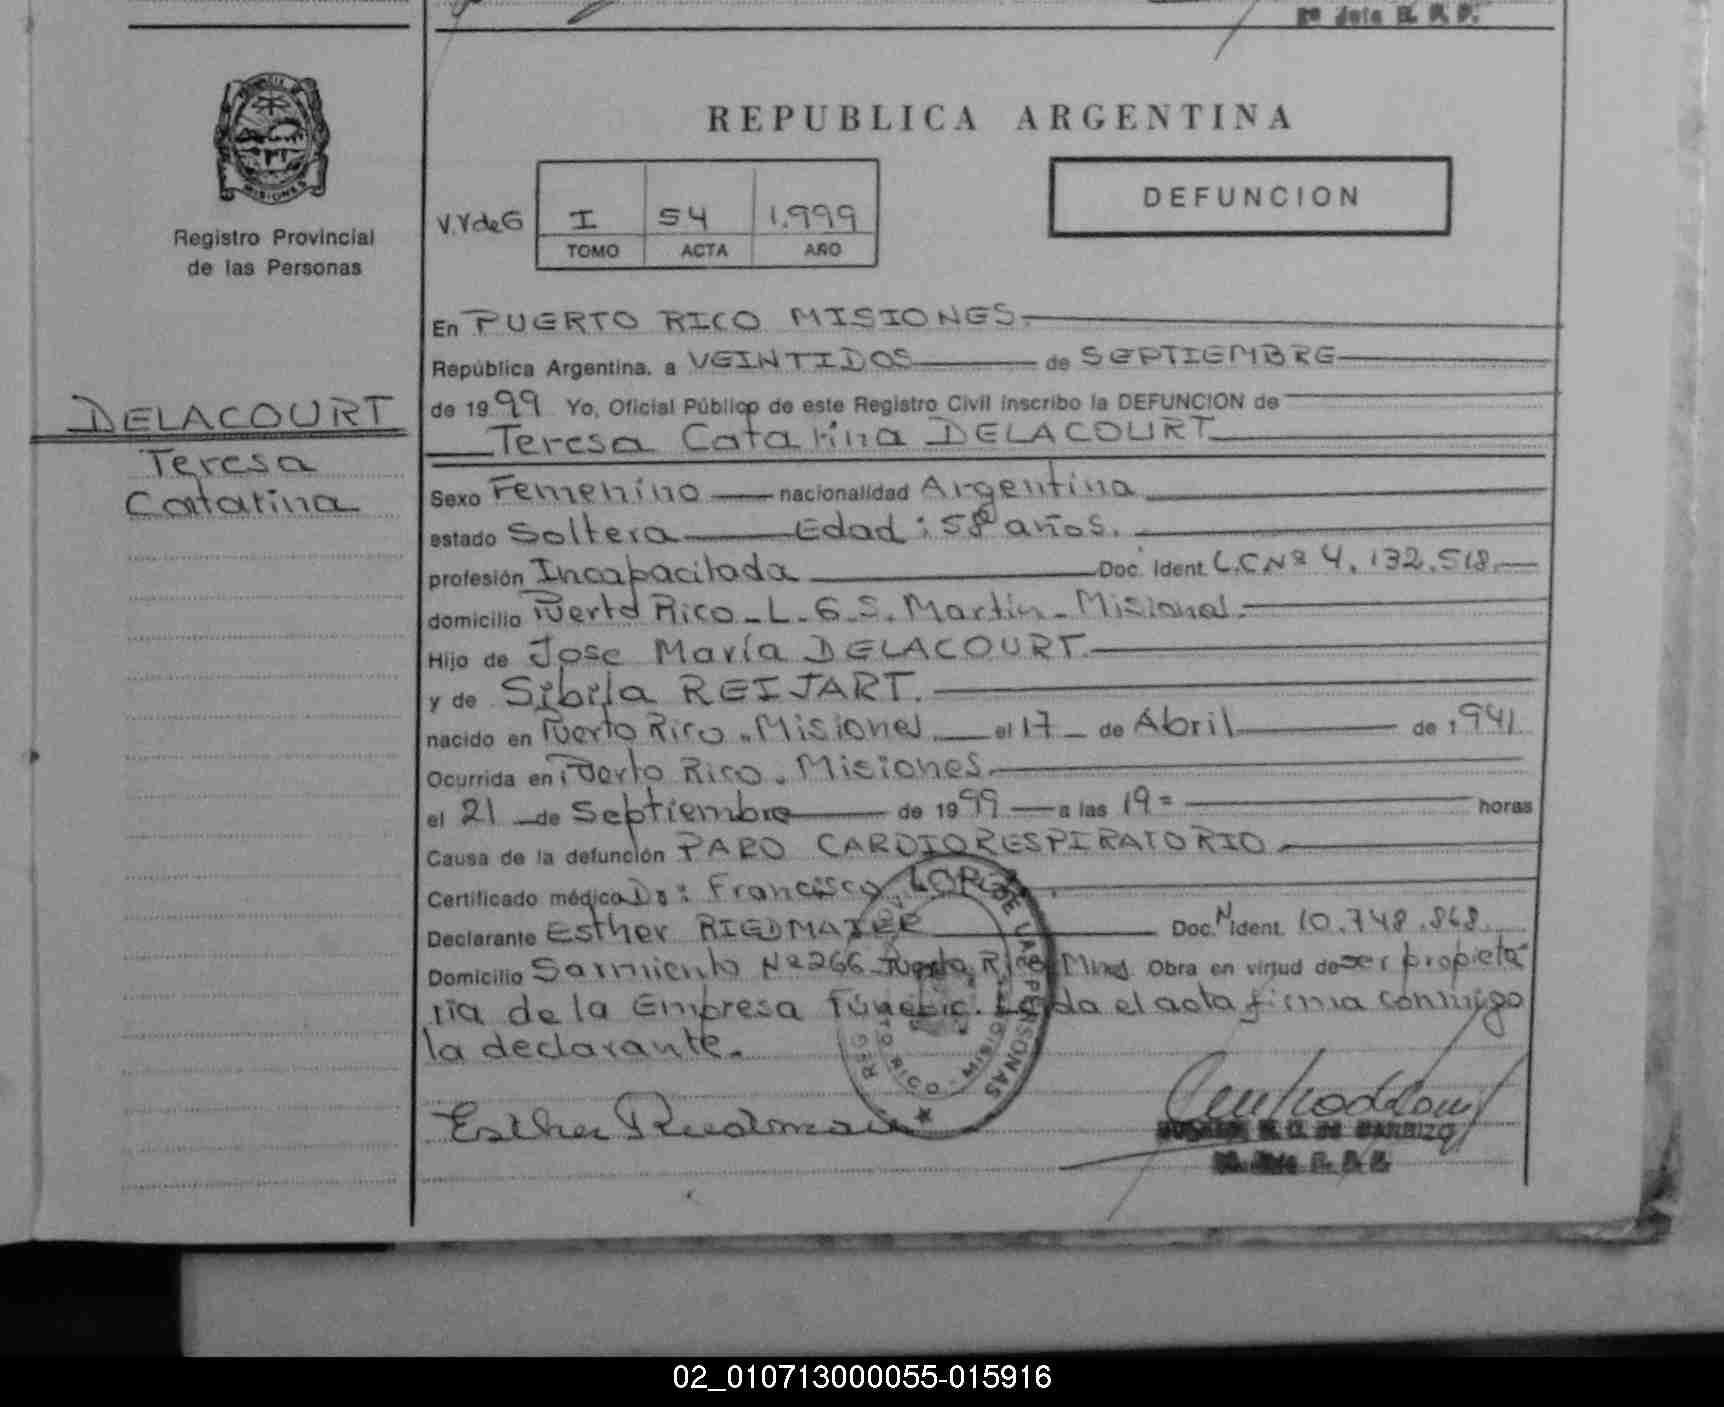 2º Jefe R. P. P.
PROVINCIA DE
MISIONES
Registro Provincial
de las Personas
REPUBLICA ARGENTINA
V.V de G I 54 1.999
TOMO ACTA AÑO
DEFUNCION
DELACOURT
Teresa
Catarina
En PUERTO RICO MISIONES.
República Argentina, a VEINTIDOS de SEPTIEMBRE
de 1999 Yo, Oficial Público de este Registro Civil inscribo la DEFUNCION de
Teresa Catarina DELACOURT
Sexo Femenino nacionalidad Argentina
estado Soltera Edad: 58 años.
profesión Incapacitada Doc. Ident. L.C Nº 4.132.518.
domicilio Puerto Rico - L. G. S. Martín - Misiones.
Hijo de Jose María DELACOURT.
y de Sibila REIJART.
nacido en Puerto Rico - Misiones el 17 de Abril de 1941.
Ocurrida en Puerto Rico - Misiones.
el 21 de Septiembre de 1999 a las 19= horas
Causa de la defunción PARO CARDIORESPIRATORIO.
Certificado médico Dr: Francisco
Declarante Esther RIEDMAIER Doc. Ident. N 10.748.868.
Domicilio Sarmiento Nº 266 - Puerto Rico Mnes. Obra en virtud de ser propieta
ria de la Empresa Fúnebre. Leída el acta firma conmigo
la declarante.
Esther Riedmaier
DE BARRIZO
2º Jefe R. P. P.
02_010713000055-015916